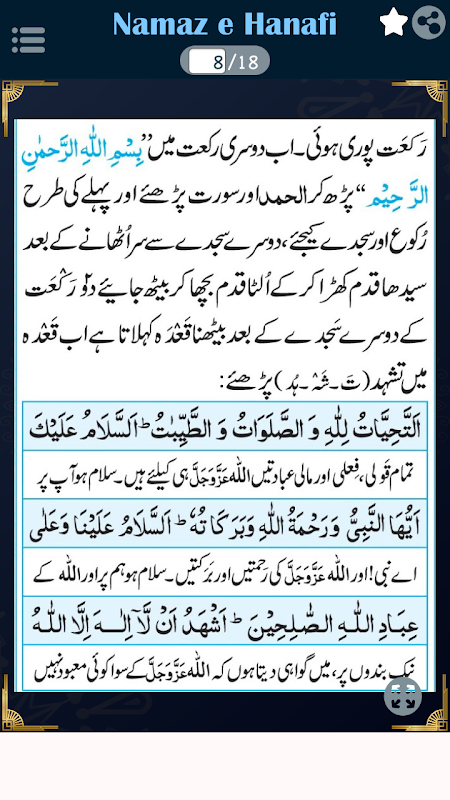 Namaz e Hanafi
8/18
رَکعَت پوری ہوئی۔ اب دوسری رکعت میں ’’بِسْمِ اللہِ الرَّحْمٰنِ
الرَّحِیْمِ‘‘ پڑھ کر الحمد اور سورت پڑھئے اور پہلے کی طرح
رُکوع اور سجدے کیجئے، دوسرے سجدے سے سر اُٹھانے کے بعد
سیدھا قدم کھڑا کر کے اُلٹا قدم بچھا کر بیٹھ جائیے دو رَکْعَت
کے دوسرے سَجدے کے بعد بیٹھنا قَعْدَہ کہلاتا ہے اب قَعْدَہ
میں تشہد (تَ۔شَہْ۔ہُد) پڑھئے:
اَلتَّحِیَّاتُ لِلّٰہِ وَ الصَّلَوَاتُ وَ الطَّیِّبٰتُ ؕ اَلسَّلَامُ عَلَیْكَ
تمام قَولی، فعلی اور مالی عبادتیں اللہ عَزَّوَجَلَّ ہی کیلئے ہیں۔ سلام ہو آپ پر
اَیُّهَا النَّبِیُّ وَرَحْمَةُ اللّٰهِ وَبَرَكَاتُهٗ ؕ اَلسَّلَامُ عَلَیْنَا وَعَلٰی
اے نبی! اور اللہ عَزَّوَجَلَّ کی رَحمتیں اور بَرَکتیں۔ سلام ہو ہم پر اور اللہ کے
عِبَادِ اللّٰهِ الصّٰلِحِیْنَ ؕ اَشْهَدُ اَنْ لَّاۤ اِلٰـهَ اِلَّا اللّٰهُ
نیک بندوں پر، میں گواہی دیتا ہوں کہ اللہ عَزَّوَجَلَّ کے سوا کوئی معبود نہیں